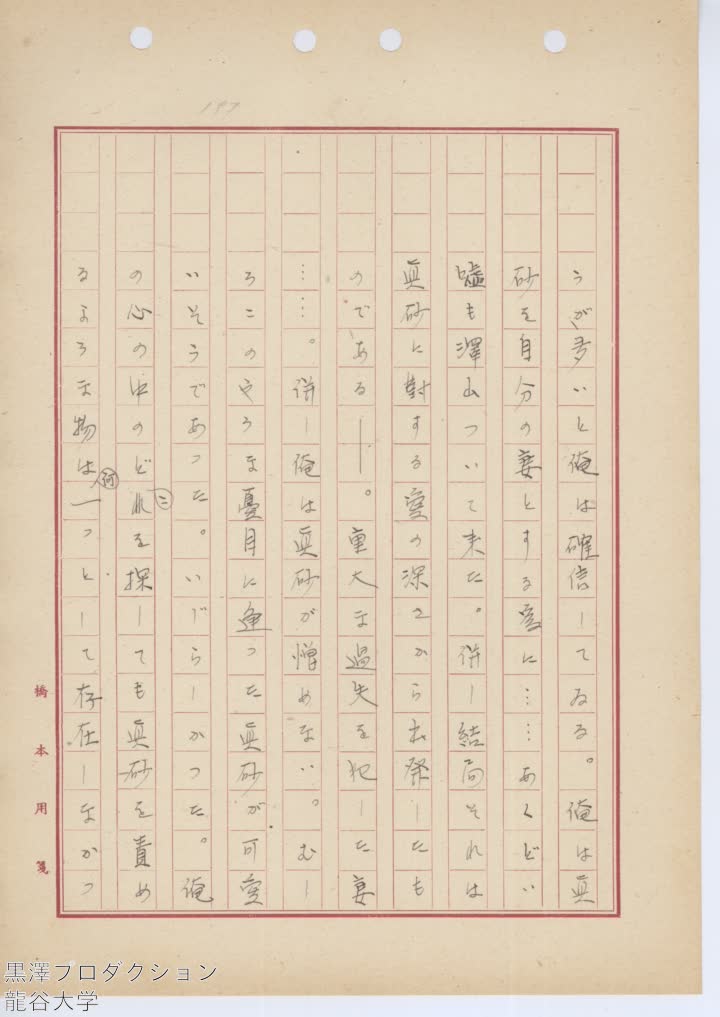 197
うが多いと俺は確信してゐる。俺は眞
砂を自分の妻とする爲に……あくどい
嘘も澤山ついて来た。併し結局それは
眞砂に對する愛の深さから出発したも
のである――。重大な過失を犯した妻
……。併し俺は眞砂が憎めない。むし
ろこのやうな憂目に逢つた眞砂が可愛
いそうであつた。いぢらしかつた。俺
の心の中のどれを探しても眞砂を責め
こ
るような物は一つとして存在しなかつ
何
橋本用箋
黒澤プロダクション
龍谷大学